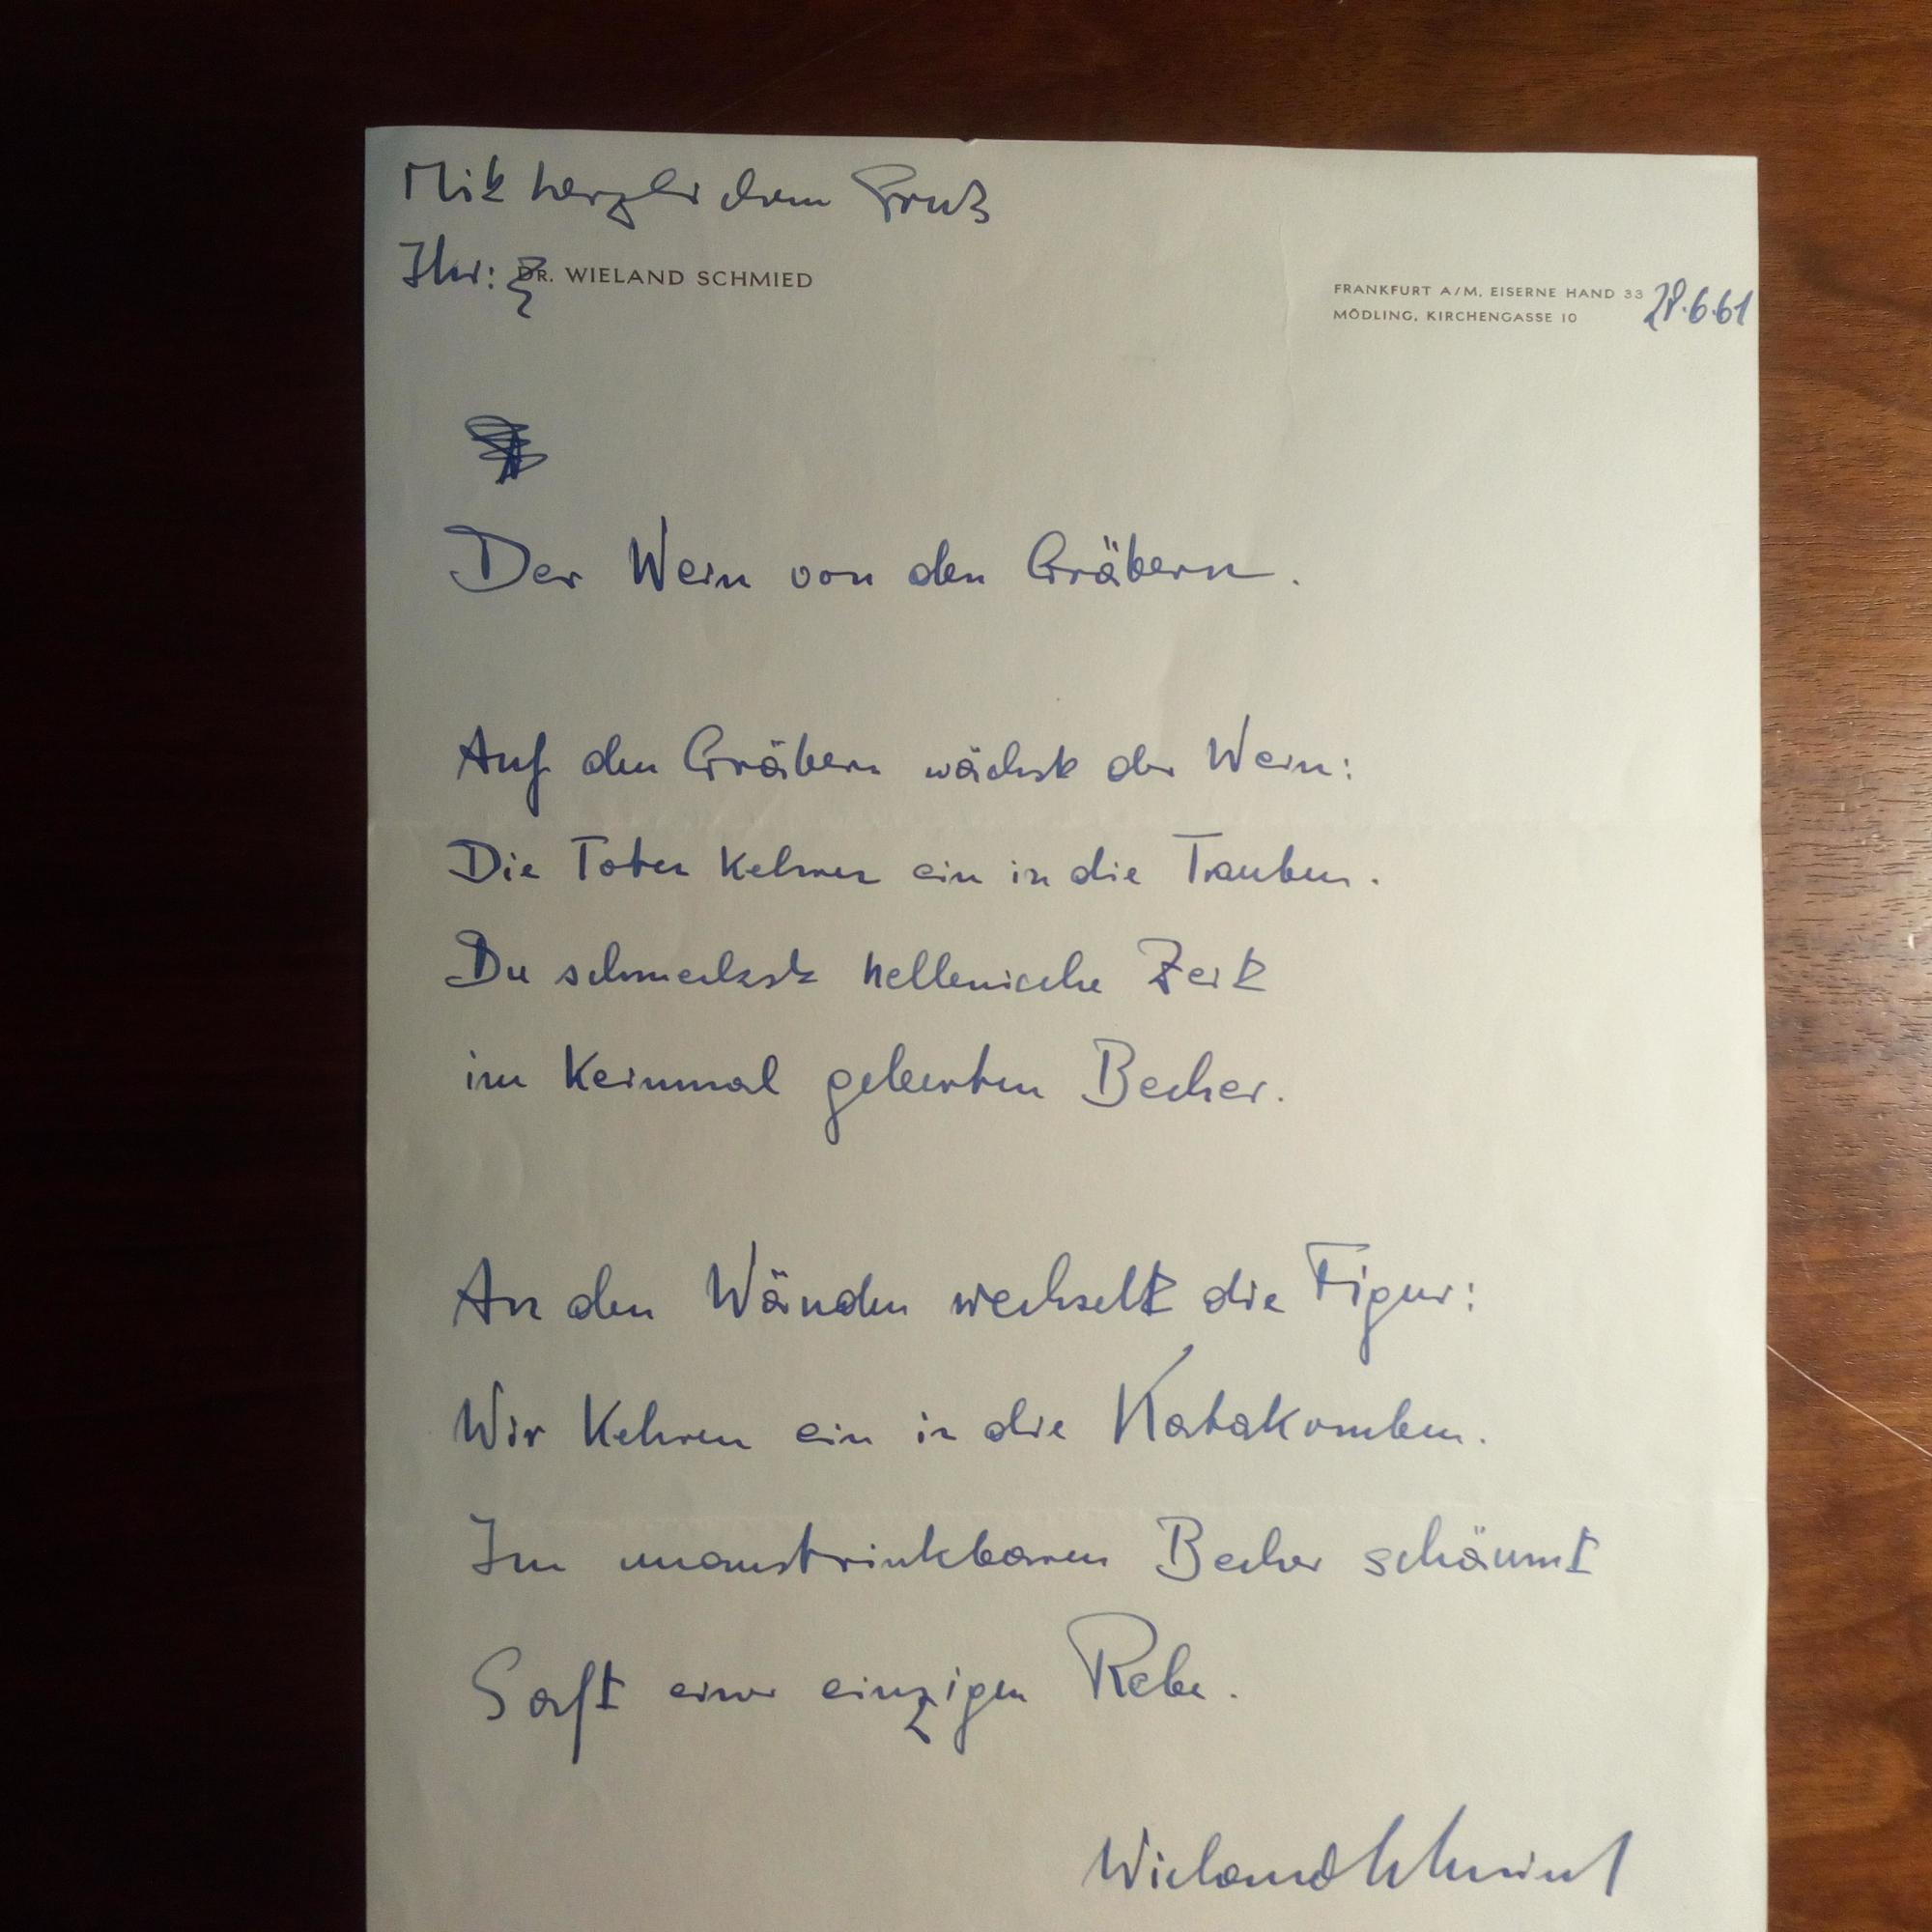 Mit herzlichem Gruß
Ihr: DR. WIELAND SCHMIED
FRANKFURT A/M, EISERNE HAND 33 28.6.61
MÖDLING, KIRCHENGASSE 10
Der Wein von den Gräbern.
Auf den Gräbern wächst der Wein:
Die Toten kehren ein in die Trauben.
Du schmeckst hellenische Zeit
im keinmal geleerten Becher.
An den Wänden wechselt die Figur:
Wir kehren ein in die Katakomben.
Im unaustrinkbaren Becher schäumt
Saft einer einzigen Rebe.
Wieland Schmied